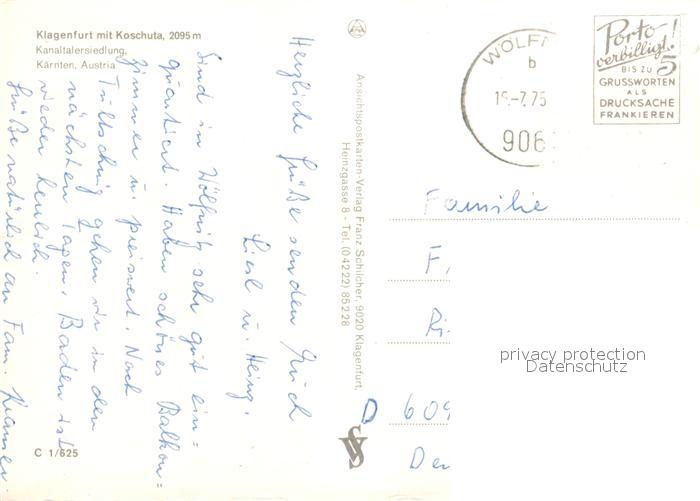 Klagenfurt mit Koschuta, 2095 m
Kanaltalersiedlung,
Kärnten, Austria
Herzliche Grüße senden Euch
Liesl u. Heinz.
Sind in Wölfnitz sehr gut ein=
quartiert. Haben schönes Balkon=
zimmer u. preiswert. Nach
Tultschnig gehen wir in den
nächsten Tagen. Baden ist
wieder herrlich.
Grüße natürlich an Fam. Kramer
C 1/625
Ansichtspostkarten-Verlag Franz Schilcher, 9020 Klagenfurt,
Heinzgasse 8 - Tel. (0 42 22) 85 2 28
WÖLFN
b
-7.75
906
Porto
verbilligt!
BIS ZU 5
GRUSSWORTEN
ALS
DRUCKSACHE
FRANKIEREN
Familie
F.
D 609
privacy protection
Datenschutz